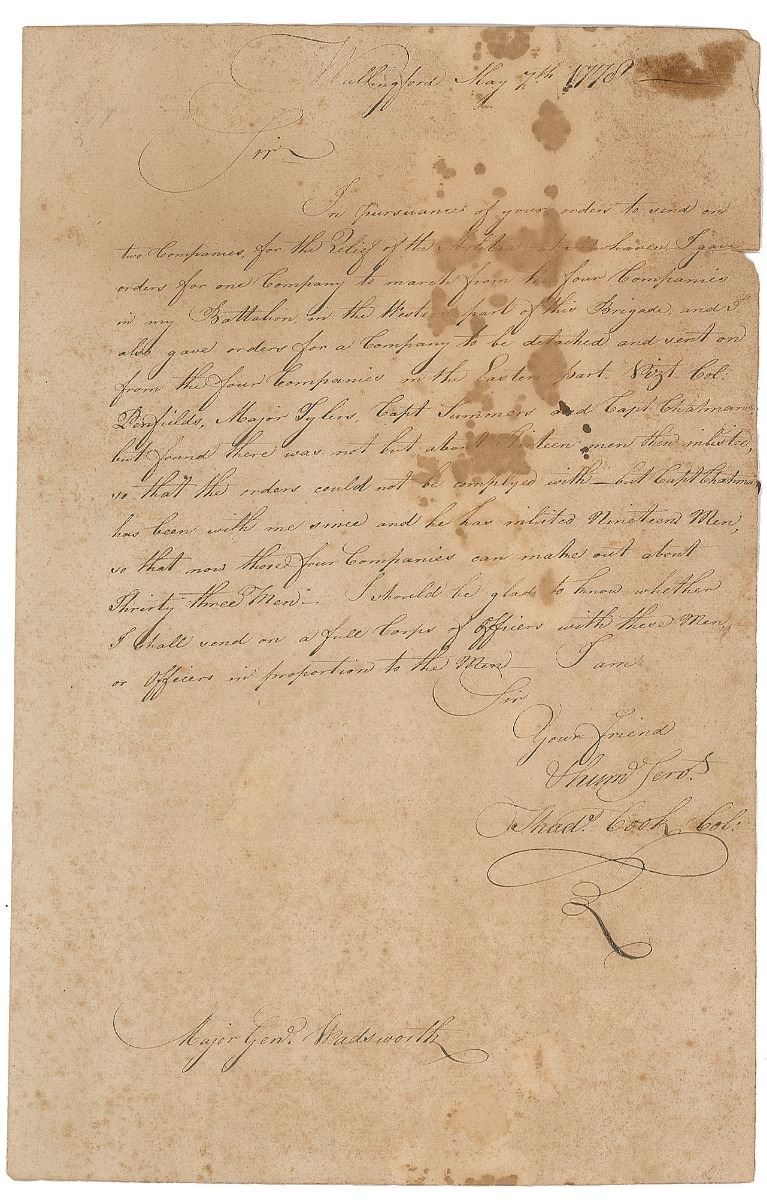 Wallingford May 7th 1778
Sir
In pursuance of your orders to send on
two Companies, for the Relief of the at Newhaven, I gave
orders for one Company to march from the four Companies
in my Battalion, in the Western part of this Brigade, and I
also gave orders for a Company to be detached and sent on
from the four Companies in the Eastern part. Vizt. Col.
Penfields, Major Tylers, Capt Summers and Capt Chatmans,
but found there was not but about men then inlisted,
so that the orders could not be complyed with — but Capt Chatman
has been with me since and he has inlisted Nineteen Men,
so that now those four Companies can make out about
Thirty three Men — I should be glad to know whether
I shall send on a full Corps of Officers with these Men,
or Officers in proportion to the Men — I am
Sir
Your friend
& humd Servt
Thads Cook Col:
Major Genl. Wadsworth